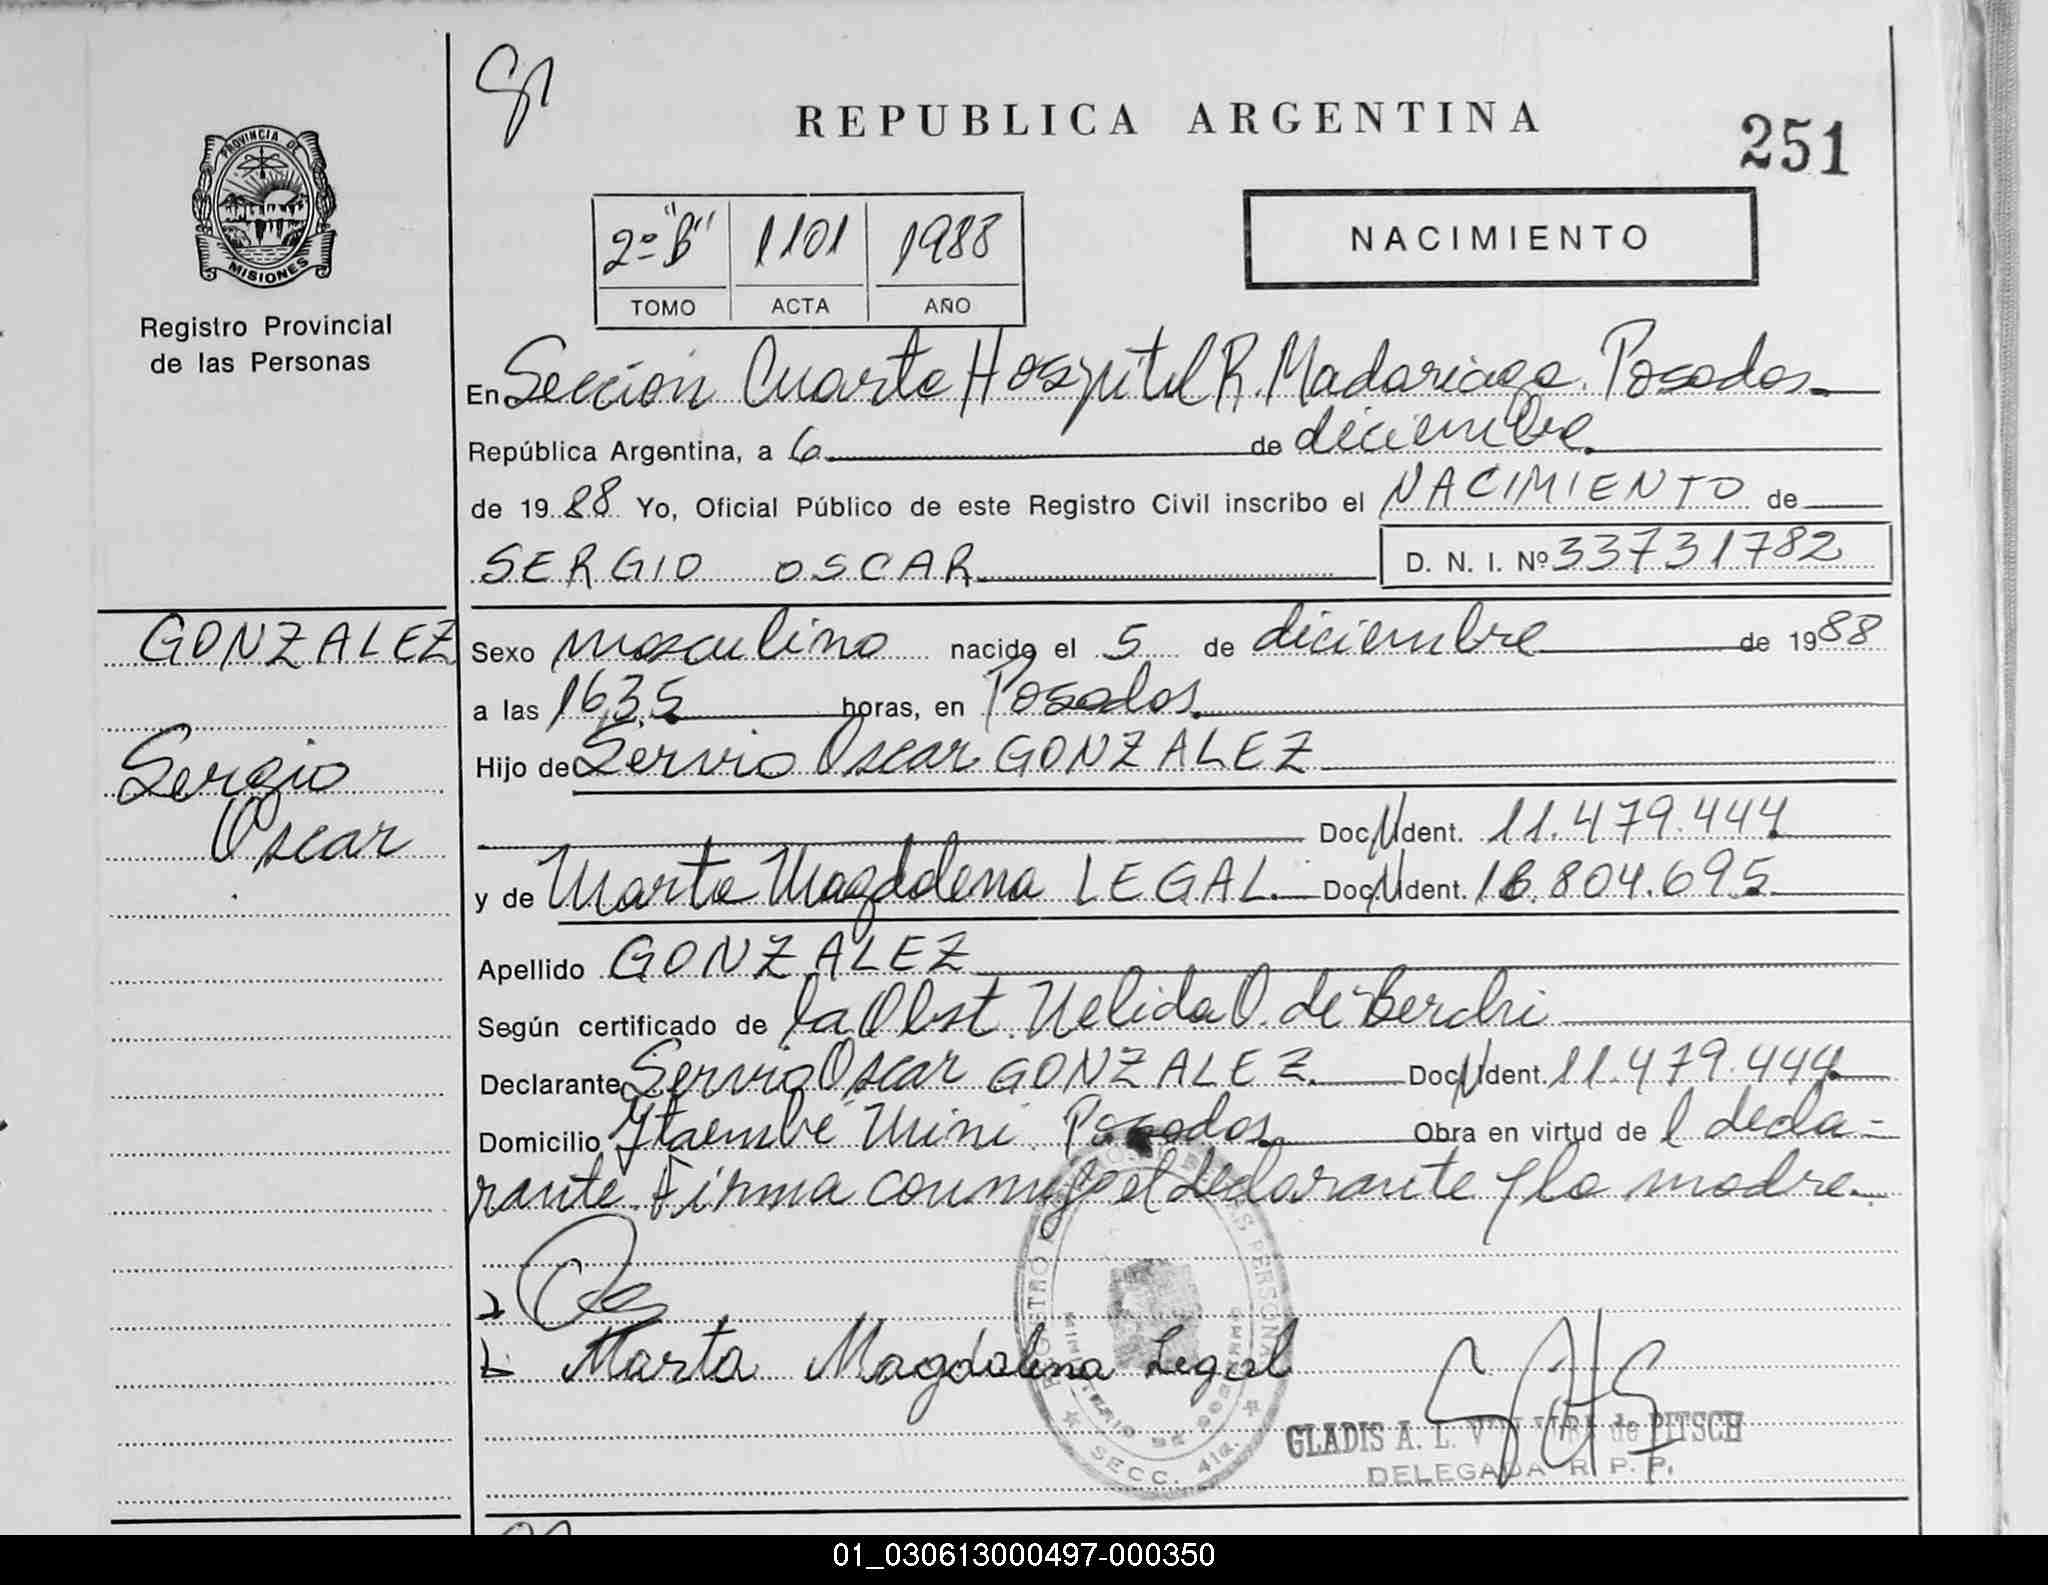 REPUBLICA ARGENTINA
251
PROVINCIA DE
MISIONES
Registro Provincial
de las Personas
2º "B" 1101 1988
TOMO ACTA AÑO
NACIMIENTO
En Sección Cuarta Hospital R. Madariaga. Posadas
República Argentina, a 6 de diciembre
de 1988 Yo, Oficial Público de este Registro Civil inscribo el NACIMIENTO de
SERGIO OSCAR D. N. I. Nº 33731782
GONZALEZ
Sergio
Oscar
Sexo masculino nacido el 5 de diciembre de 1988
a las 16,35 horas, en Posadas
Hijo de Servio Oscar GONZALEZ
Doc. Ident. 11.479.444
y de Marta Magdalena LEGAL. Doc. Ident. 16.804.695
Apellido GONZALEZ
Según certificado de la Obst. Nelida O. de Berchi
Declarante Servio Oscar GONZALEZ. Doc. Ident. 11.479.444
Domicilio Itaembé Mini Posadas Obra en virtud de l decla-
rante. Firma conmigo el declarante y la madre.
Marta Magdalena Legal
REGISTRO PERSONAS
SECC. 41a.
GLADIS A. L. de PITSCH
DELEGADA R. P. P.
01_030613000497-000350